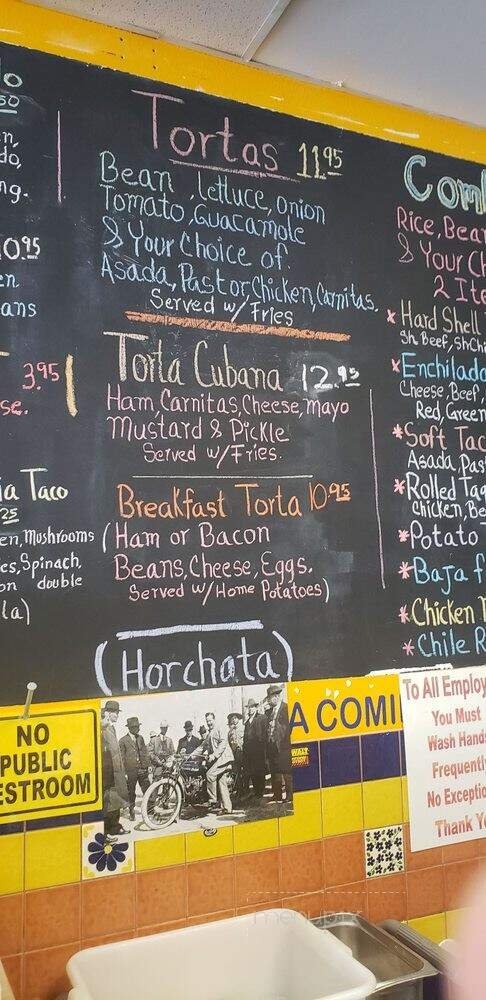 Tortas 11.95
Bean, lettuce, onion
Tomato, Guacamole
& Your Choice of:
Asada, Pastor, Chicken, Carnitas.
Served w/ Fries
Torta Cubana 12.95
Ham, Carnitas, Cheese, Mayo
Mustard & Pickle
Served w/ Fries.
Breakfast Torta 10.95
(Ham or Bacon
Beans, Cheese, Eggs.
Served w/ Home Potatoes)
(Horchata)
0.95
3.95
se.
ia Taco
en, Mushrooms
es, Spinach,
on double
la)
Com
Rice, Bean
& Your Ch
2 Ite
* Hard Shell
Sh. Beef, Sh Chi
* Enchilada
Cheese, Beef,
Red, Green
* Soft Tac
Asada, Pas
* Rolled Ta
Chicken, Be
* Potato
* Baja f
* Chicken
* Chile R
NO
PUBLIC
ESTROOM
A COMI
To All Employ
You Must
Wash Hands
Frequently
No Exceptio
Thank Yo
menupix